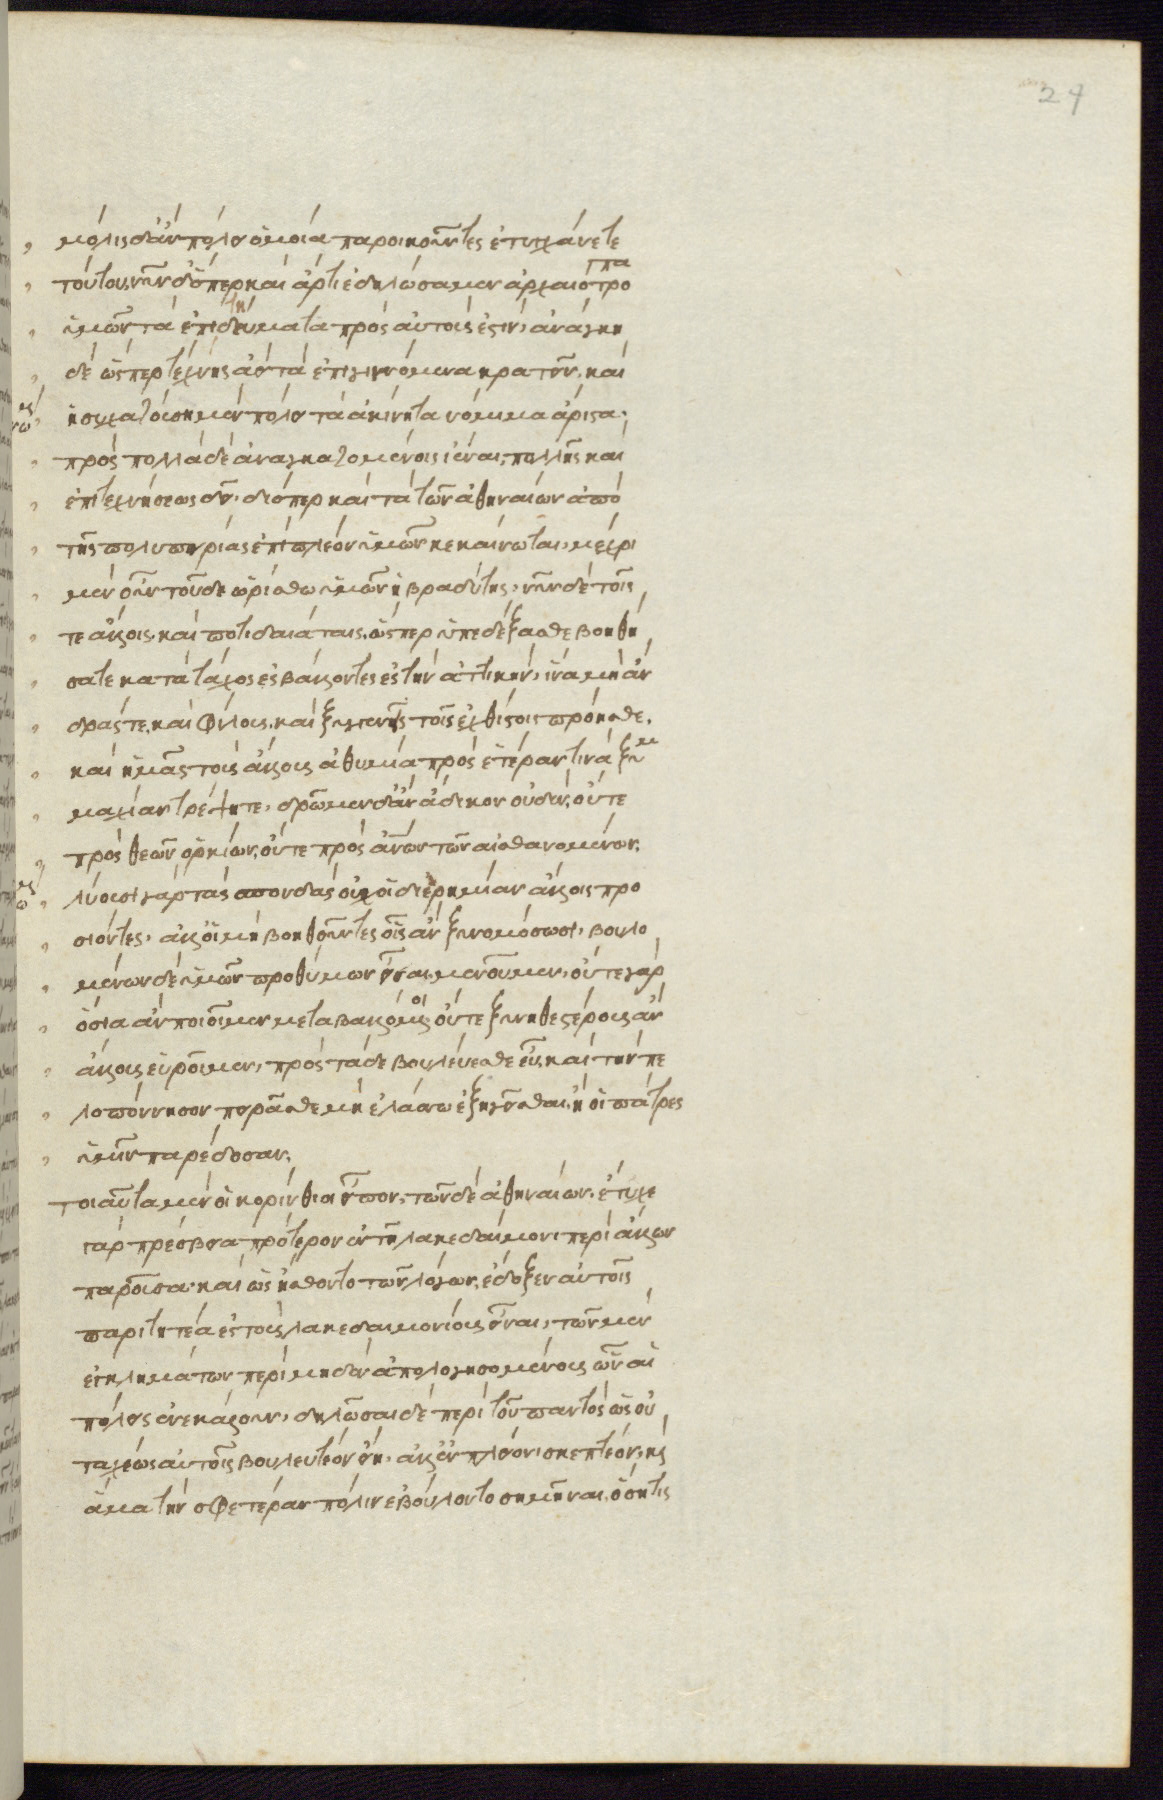 24
μόλις δ' ἂν πόλει ὁμοία παροικοῦντες ἐτυγχάνετε
τούτου, νῦν δ' ὅπερ καὶ ἄρτι ἐδηλώσαμεν ἀρχαιότροπα
ὑμῶν τὰ ἐπιτηδεύματα πρὸς αὐτούς ἐστιν, ἀνάγκη
δὲ ὥσπερ τέχνης ἀεὶ τὰ ἐπιγιγνόμενα κρατεῖν, καὶ
ἡσυχαζούσῃ μὲν πόλει τὰ ἀκίνητα νόμιμα ἄριστα,
πρὸς πολλὰ δὲ ἀναγκαζομένοις ἰέναι, πολλῆς καὶ
ἐπιτεχνήσεως δεῖ, διόπερ καὶ τὰ τῶν ἀθηναίων ἀπὸ
τῆς πολυπειρίας ἐπὶ πλέον ὑμῶν κεκαίνωται, μέχρι
μὲν οὖν τοῦδε ὡρίσθω ὑμῶν ἡ βραδύτης, νῦν δὲ τοῖς
τε ἄλλοις, καὶ ποτιδαιάταις, ὥσπερ ὑπεδέξασθε βοηθή
σατε κατὰ τάχος ἐσβαλόντες ἐς τὴν ἀττικήν, ἵνα μὴ ἄν
δρας τε, καὶ φίλους, καὶ ξυγγενεῖς τοῖς ἐχθίστοις πρόησθε,
καὶ ἡμᾶς τοὺς ἄλλους ἀθυμίᾳ πρὸς ἑτέραν τινὰ ξυμ
μαχίαν τρέψητε, δρῷμεν δ' ἂν ἄδικον οὐδὲν, οὔτε
πρὸς θεῶν ὁρκίων, οὔτε πρὸς ἀνων τῶν αἰσθανομένων,
λύουσι γὰρ τὰς σπονδὰς οὐχ οἱ δι' ἐρημίαν ἄλλοις προ
σιόντες, ἀλλ' οἱ μὴ βοηθοῦντες οἷς ἂν ξυνομόσωσι, βουλο
μένων δὲ ὑμῶν προθύμων εἶναι, μενοῦμεν, οὔτε γὰρ
ὅσια ἂν ποιοῖμεν μεταβαλλόμενοι, οὔτε ξυνηθεστέρους ἂν
ἄλλους εὕροιμεν, πρὸς τάδε βουλεύεσθε εὖ, καὶ τὴν πε
λοπόννησον πειρᾶσθε μὴ ἐλάσσω ἐξηγεῖσθαι, ἢ οἱ πατρες
ὑμῖν παρέδοσαν.
τοιαῦτα μὲν οἱ κορίνθιοι εἶπον, τῶν δὲ ἀθηναίων, ἔτυχε
γὰρ πρεσβεία πρότερον ἐν τῇ λακεδαίμονι περὶ ἄλλων
παροῦσα, καὶ ὡς ᾔσθοντο τῶν λόγων, ἔδοξεν αὐτοῖς
παριτητέα ἐς τοὺς λακεδαιμονίους εἶναι, τῶν μὲν
ἐγκλημάτων περὶ μηδὲν ἀπολογησομένους ὧν αἱ
πόλεις ἐνεκάλουν, δηλῶσαι δὲ περὶ τοῦ παντὸς ὡς οὐ
ταχέως αὐτοῖς βουλευτέον εἴη, ἀλλ' ἐν πλείονι σκεπτέον, κς
ἅμα τὴν σφετέραν πόλιν ἐβούλοντο σημῆναι, ὅση τις